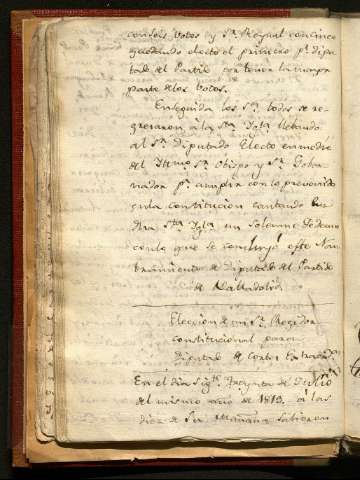 votos y Sr.
quedando electo el primero pr. dipu-
tado del Partido con
parte de los votos.
Enseguida los Sres. todos se re-
gresaron á la Sta. Igla. llebando
al Sr. Diputado Electo en medio
del Illmo. Sr. Obispo y Sr. Gober-
nador pa. cumplir con lo prevenido
en la constitucion cantando
dha Sta. Igla. un Solemne Tedeum
con lo que se concluyó este Nom-
bramiento de Diputado del Partido
de Valladolid.
Eleccion de un Sr. Regidor
constitucional para
Diputado de Cortes
En el dia Sigte. treynta de Julio
del mismo año de 1813, á las
diez de su Mañana salieron